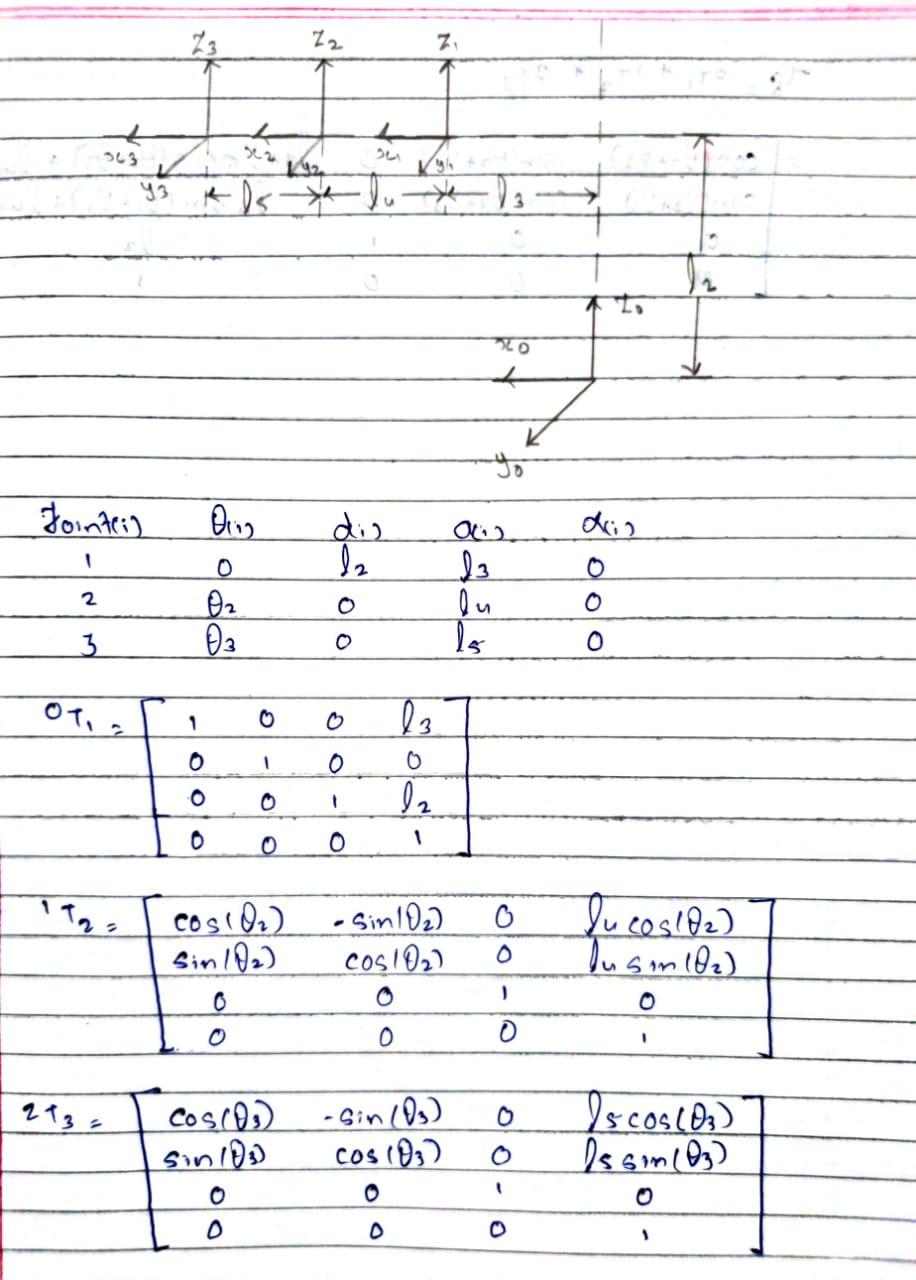 Z3 Z2 Z1
x3 x2 x1
y3 y2 y1
l5 l4 l3
l2
Z0
x0
y0
Joint(i) θ(i) d(i) a(i) α(i)
1 0 l2 l3 0
2 θ2 0 l4 0
3 θ3 0 l5 0
0T1 = 1 0 0 l3
0 1 0 0
0 0 1 l2
0 0 0 1
1T2 = cos(θ2) -sin(θ2) 0 l4 cos(θ2)
sin(θ2) cos(θ2) 0 l4 sin(θ2)
0 0 1 0
0 0 0 1
2T3 = cos(θ3) -sin(θ3) 0 l5 cos(θ3)
sin(θ3) cos(θ3) 0 l5 sin(θ3)
0 0 1 0
0 0 0 1